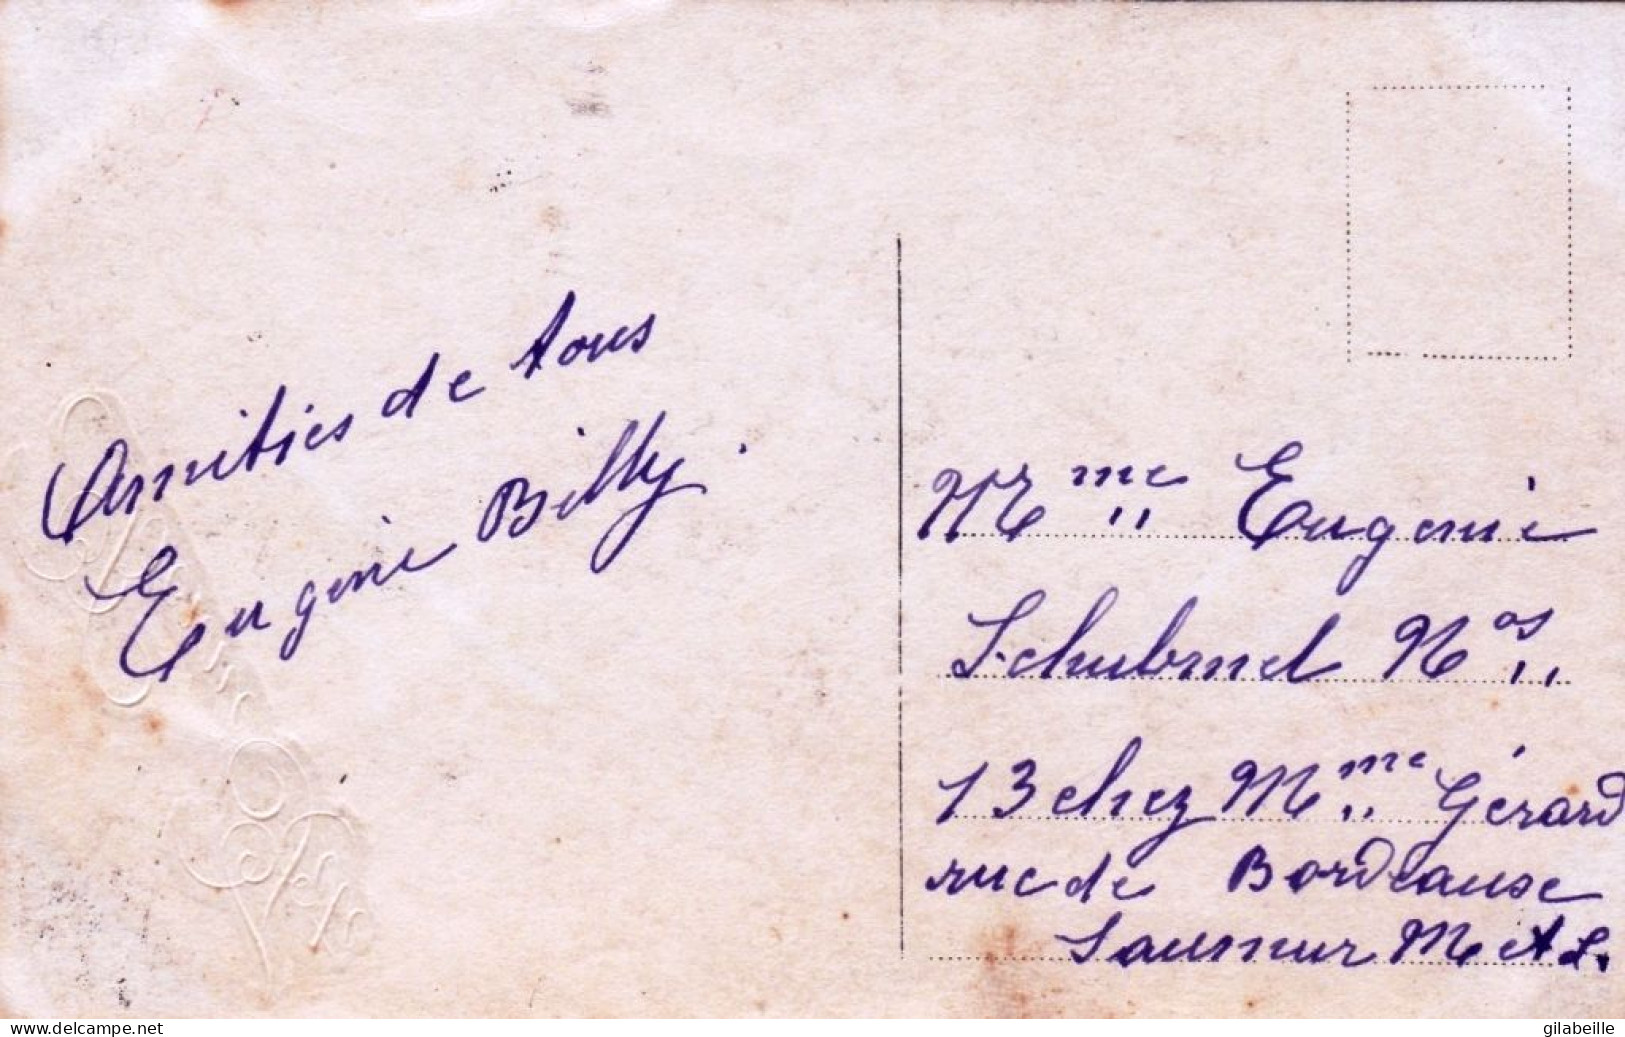 Amitiés de tous
Eugénie Billy.
Mme Eugenie
Schubmel Nos
13 chez Mme Gérard
rue de Bordeause
Saumur M et L.
www.delcampe.net
gilabeille